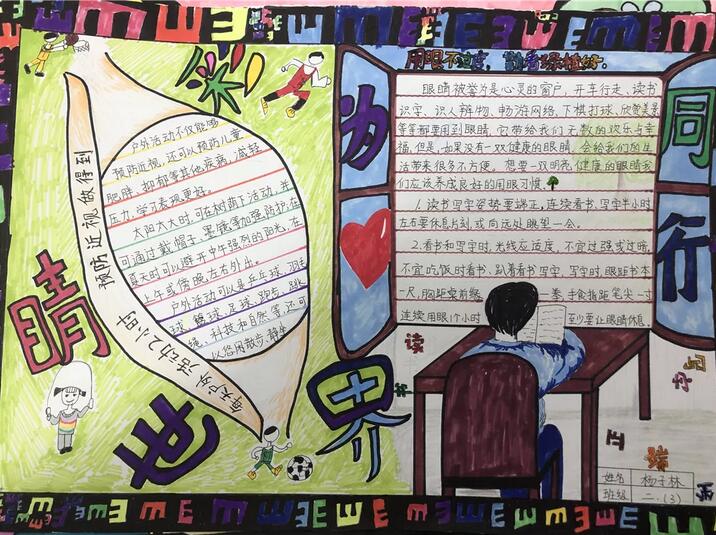 预防近视做得到
每天户外活动2小时
户外活动不仅能够
预防近视,还可以预防儿童
肥胖、抑郁等其他疾病,减轻
压力,学习表现更好。
太阳太大时,可在树荫下活动,并
可通过戴帽子、墨镜等加强防护;在
夏天时可以避开中午强烈的阳光,在
上午或傍晚左右外出。
户外活动可以是乒乓球、羽毛
球、篮球、足球、跑步、跳
绳、科技和自然等,还可
以悠闲散步、静坐
彩
睛
世
界
为
同
行
眼睛被誉为是心灵的窗户,开车行走、读书
识字、识人辨物、畅游网络、下棋打球、欣赏美景
等等都要用到眼睛,它带给我们无数的欢乐与幸
福,但是,如果没有一双健康的眼睛,会给我们的生
活带来很多不方便。想要一双明亮健康的眼睛我
们应该养成良好的用眼习惯。
1.读书写字姿势要端正,连续看书、写字半小时
左右要休息片刻,或向远处眺望一会。
2.看书和写字时,光线应适度,不宜过强或过暗,
不宜吃饭时看书、趴着看书写字,写字时,眼距书本
一尺,胸距桌前缘一拳,手食指距笔尖一寸
连续用眼1个小时至少要让眼睛休息。
读
书
写
字
正
端
姓名 杨子林
班级 二.(3)